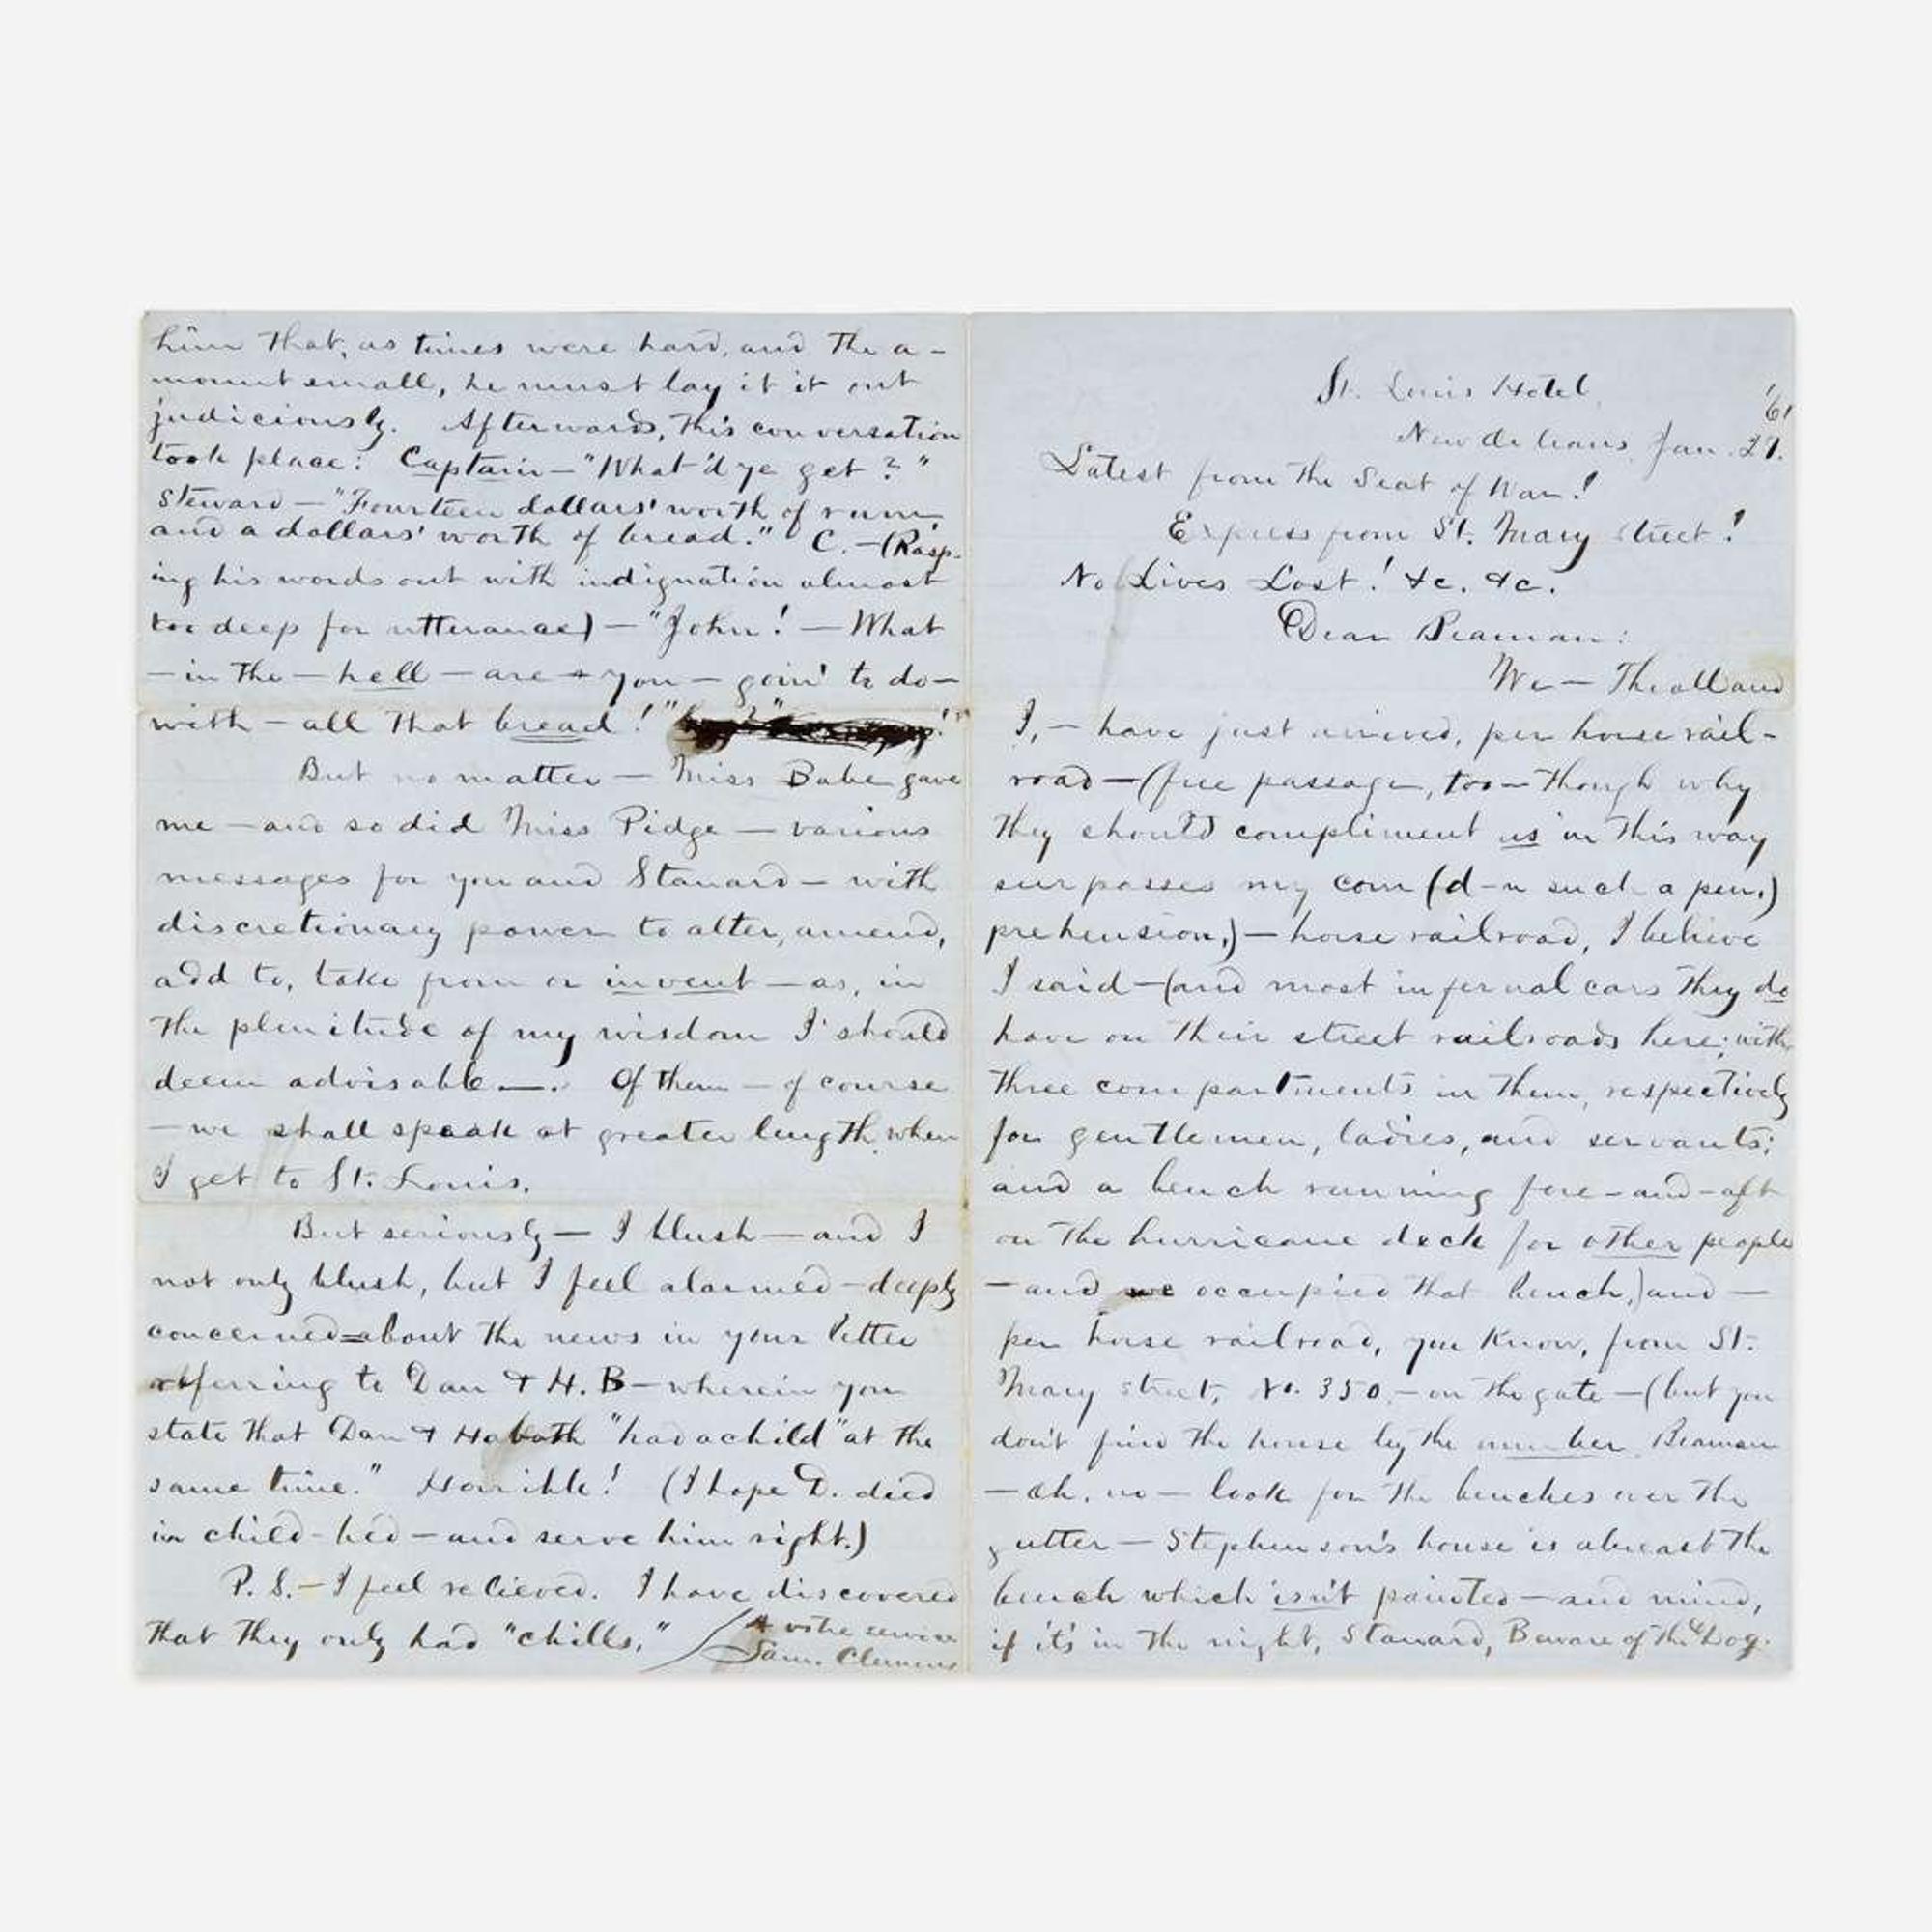 him that, as times were hard, and the a-
mount small, he must lay it it out
judiciously. Afterwards, this conversation
took place: Captain—"What'd ye get?"
Steward—"Fourteen dollars' worth of rum,
and a dollars' worth of bread." C.—(Rasp-
ing his words out with indignation almost
too deep for utterance)—"John!—What
—in the—hell—are—you—goin' to do—
with—all that bread!"
But no matter—Miss Babe gave
me—and so did Miss Pidge—various
messages for you and Stanard—with
discretionary power to alter, amend,
add to, take from or invent—as, in
the plenitude of my wisdom I should
deem advisable—. Of them—of course
—we shall speak at greater length, when
I get to St. Louis.
But seriously—I blush—and I
not only blush, but I feel alarmed—deeply
concerned—about the news in your letter
referring to Dan & H. B—wherein you
state that Dan & Ha both "had a child" at the
same time." Horrible! (I hope D. died
in child-bed—and serve him right.)
P. S.—I feel relieved. I have discovered
that they only had "chills."
A votre service
Sam. Clemens
St. Louis Hotel,
'61
New Orleans, Jan. 29.
Latest from the Seat of War!
Express from St. Mary Street!
No Lives Lost! &c. &c.
Dear Beaman:
We—Theall and
I,—have just arrived, per horse rail-
road—(free passage, too—though why
they should compliment us in this way
surpasses my com (d—n such a pen,)
prehension,)—horse railroad, I believe
I said—(and most infernal cars they do
have on their street railroads here; with
three compartments in them, respectively
for gentlemen, ladies, and servants;
and a bench running fore-and-aft
on the hurricane deck for other people
—and we occupied that bench,) and—
per horse railroad, you know, from St.
Mary street, No. 350,—on the gate—(but you
don't find the house by the number, Beaman
—oh, no—look for the benches over the
gutter—Stephenson's house is abreast the
bench which isn't painted—and mind,
if it's in the night, Stanard, Beware of the Dog.